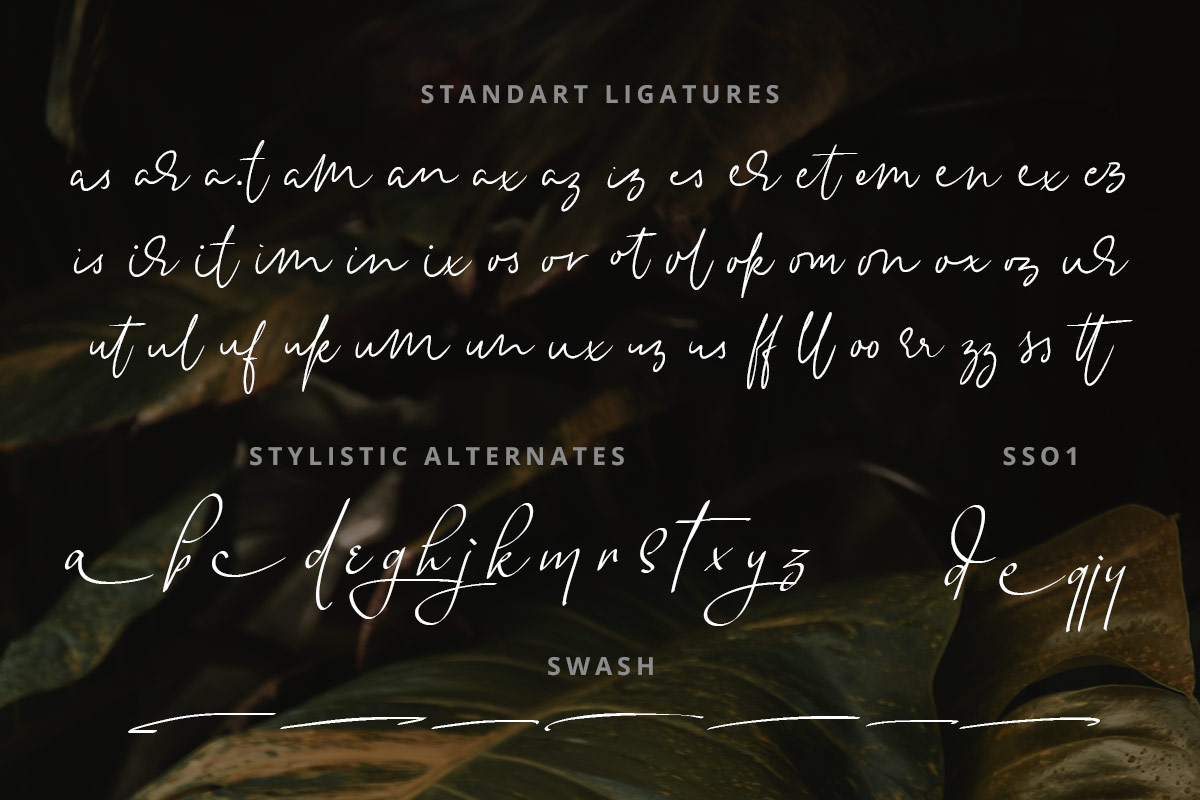 STANDART LIGATURES
as ar a.t am an ax az iz es er et em en ex ez
is ir it im in ix os or ot ol ok om on ox oz ur
ut ul uf uk um un ux uz us ff ll oo rr zz ss tt
STYLISTIC ALTERNATES SS01
a b c d e g h j k m r s t x y z d e q j y
SWASH